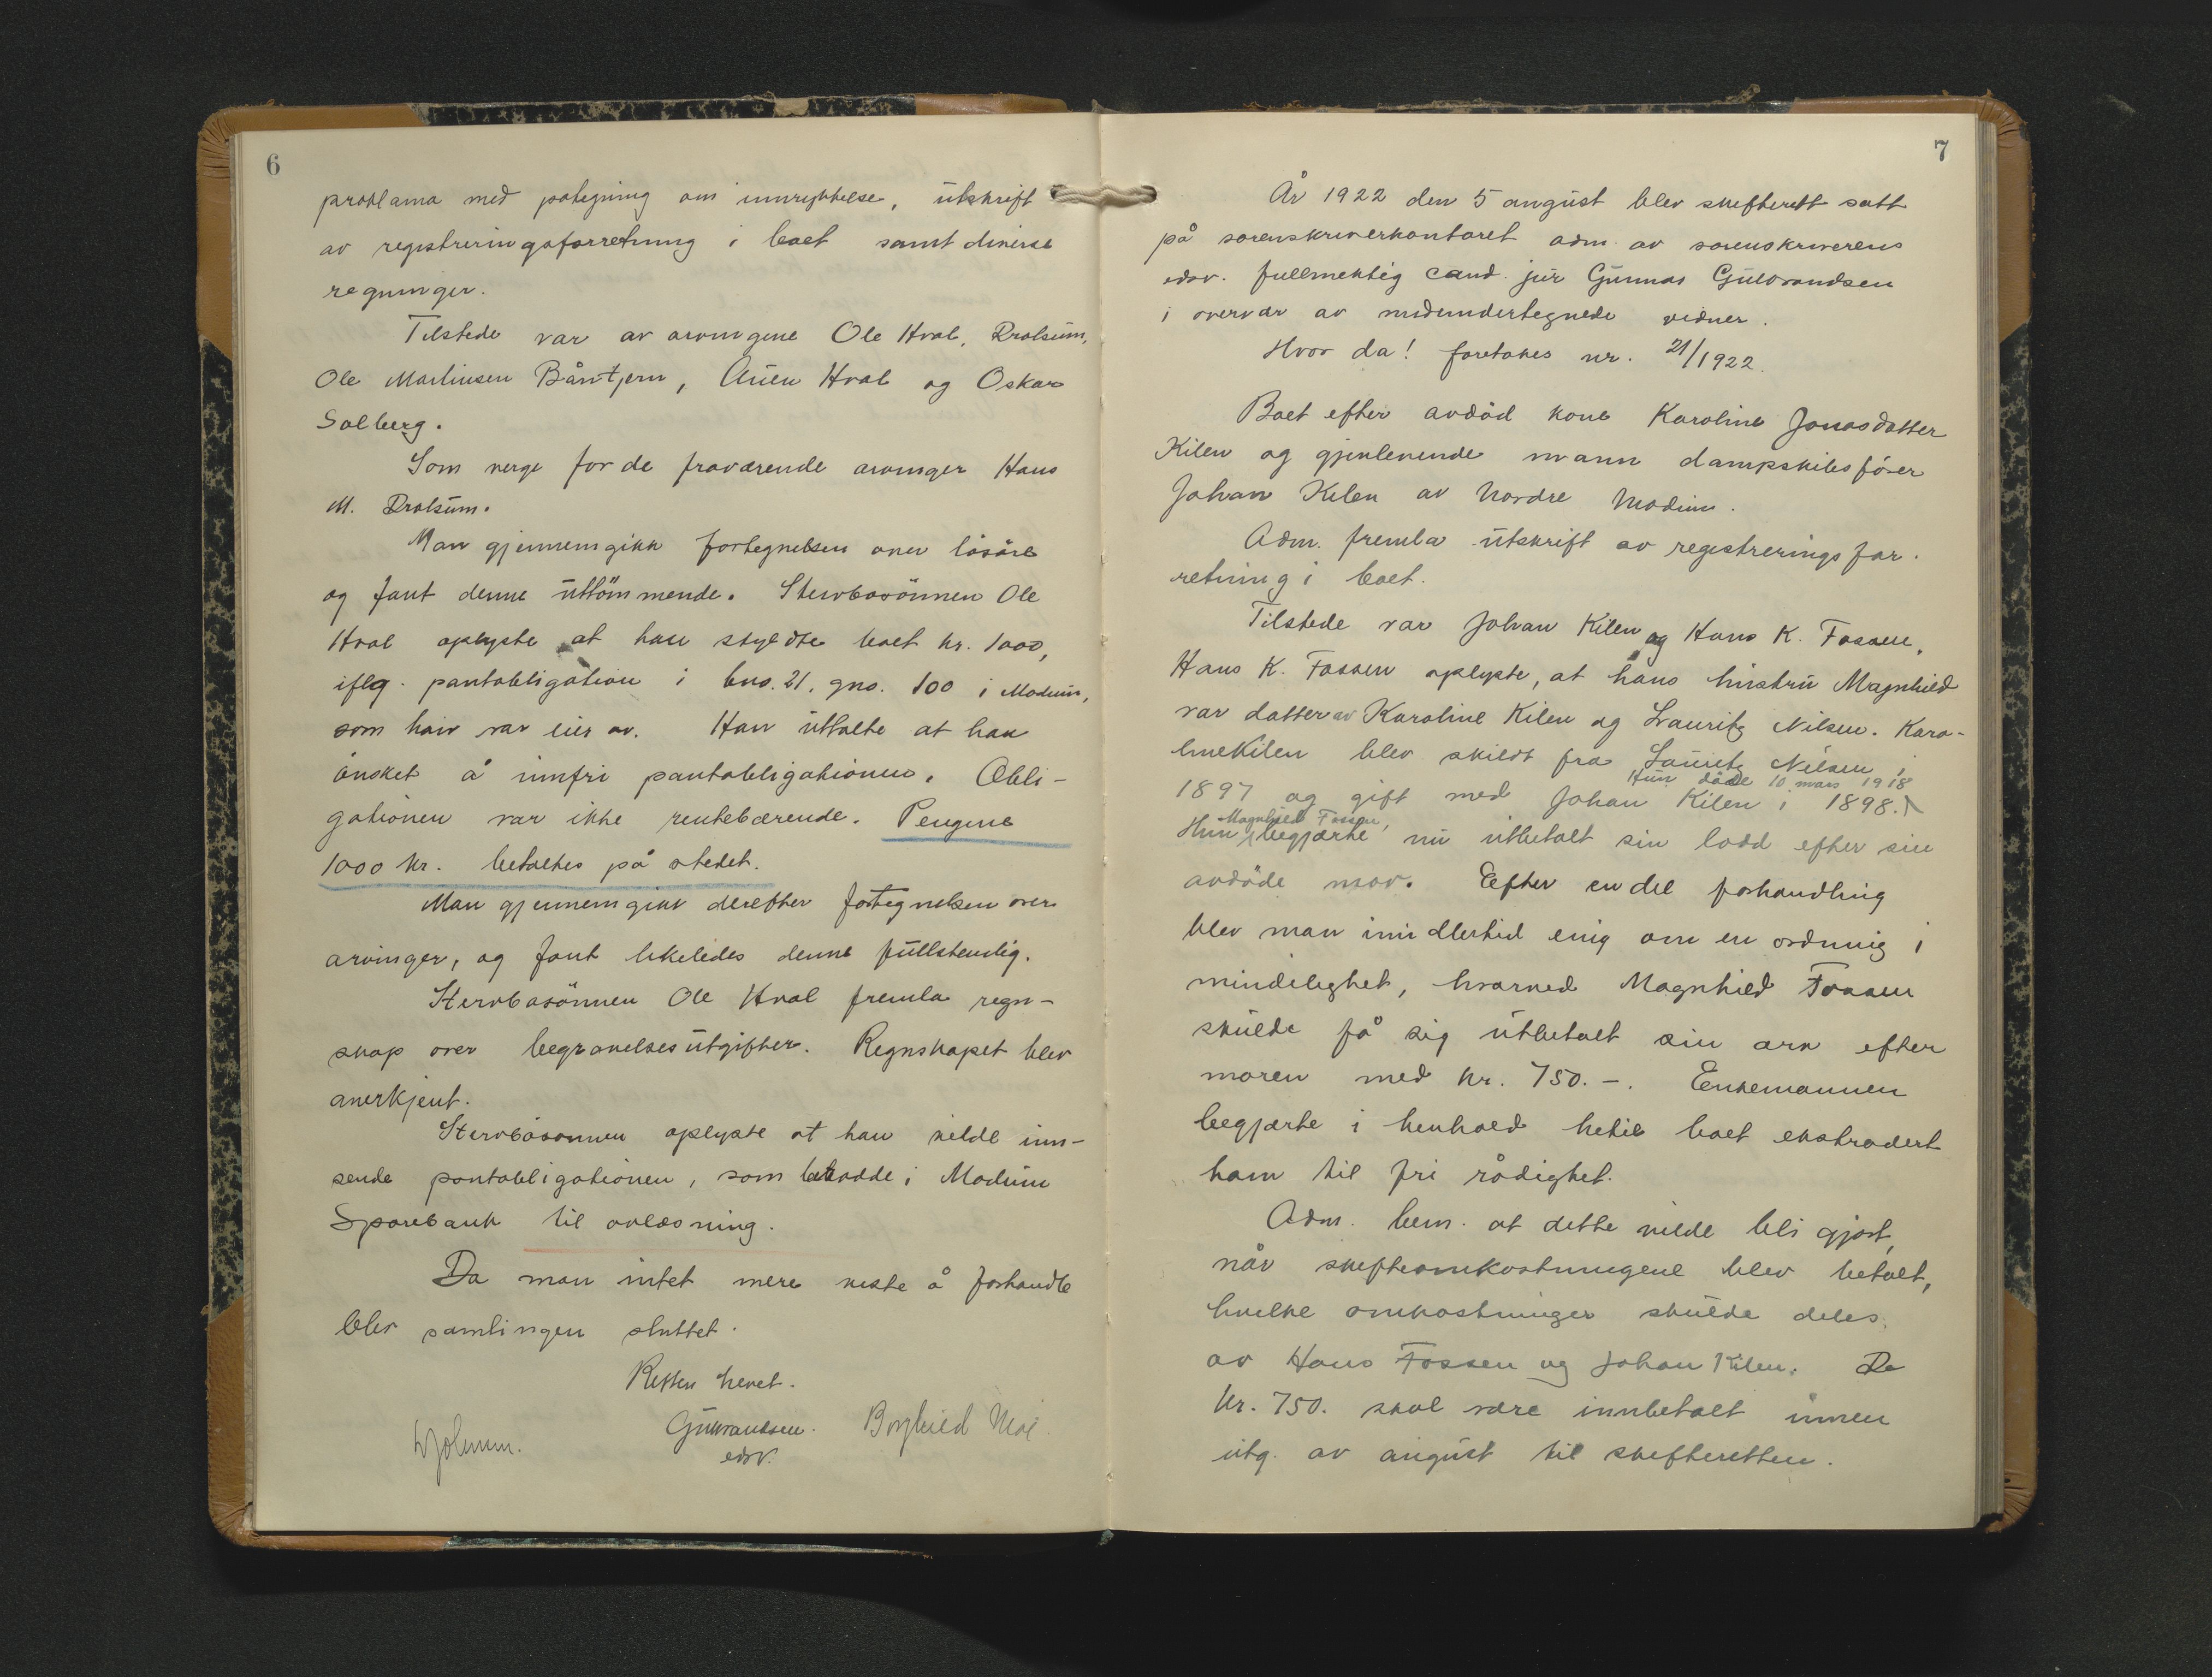 6
proklama med påtegning om innrykkelse, utskrift
av registreringsforretning i boet samt diverse
regninger.
Tilstede var av arvingene Ole Hval, Drolsum,
Ole Martinsen Båntjern, Auen Hval og Oskar
Solberg.
Som verge for de fraværende arvinger Hans
M. Drolsum.
Man gjennemgikk fortegnelsen over lösöre
og fant denne uttömmende. Stervbosönnen Ole
Hval oplyste at han skyldte boet kr. 1000,
iflg. pantobligation i bno. 21, gno. 100 i Modum,
som han var eier av. Han uttalte at han
önsket å innfri pantobligationen. Obli-
gationen var ikke rentebærende. Pengene
1000 kr. betaltes på stedet.
Man gjennemgikk derefter fortegnelsen over
arvinger, og fant likeledes denne fullstendig.
Stervbosönnen Ole Hval fremla regn-
skap over begravelsesutgifter. Regnskapet blev
anerkjent.
Stervbosönnen oplyste at han vilde inn-
sende pantobligationen, som bebodde i Modum
Sparebank til avlæsning.
Da man intet mere visste å forhandle
blev samlingen sluttet.
Retten hevet.
Gulbrandsen. Borghild Moe.
edsv.
7
År 1922 den 5 august blev skifterett satt
på sorenskriverkontoret adm. av sorenskriverens
edsv. fullmektig cand. jur Gunnar Gulbrandsen
i overvær av medundertegnede vidner.
Hvor da! foretokes nr. 21/1922.
Boet efter avdöd kone Karoline Jonasdatter
Kilen og gjenlevende mann dampskibsförer
Johan Kilen av Nordre Modum.
Adm. fremla utskrift av registreringsfor-
retning i boet.
Tilstede var Johan Kilen og Hans K. Fossen.
Hans K. Fossen oplyste, at hans hustru Magnhild
var datter av Karoline Kilen og Lauritz Nilsen. Karo-
line Kilen blev skildt fra Lauritz Nilsen i
Hun döde 10 mars 1918
1897 og gift med Johan Kilen i 1898.
Magnhild Fossen,
Hun begjærte nu utbetalt sin lodd efter sin
avdöde mor. Efter en del forhandling
blev man imidlertid enig om en ordning i
mindelighet, hvorved Magnhild Fossen
skulde få sig utbetalt sin arv efter
moren med kr. 750.-. Enkemannen
begjærte i henhold hertil boet ekstradert
ham til fri rådighet.
Adm. bem. at dette vilde bli gjort,
når skifteomkostningene blev betalt,
hvilke omkostninger skulde deles
av Hans Fossen og Johan Kilen. De
kr. 750. skal være innbetalt innen
utg. av august til skifteretten.